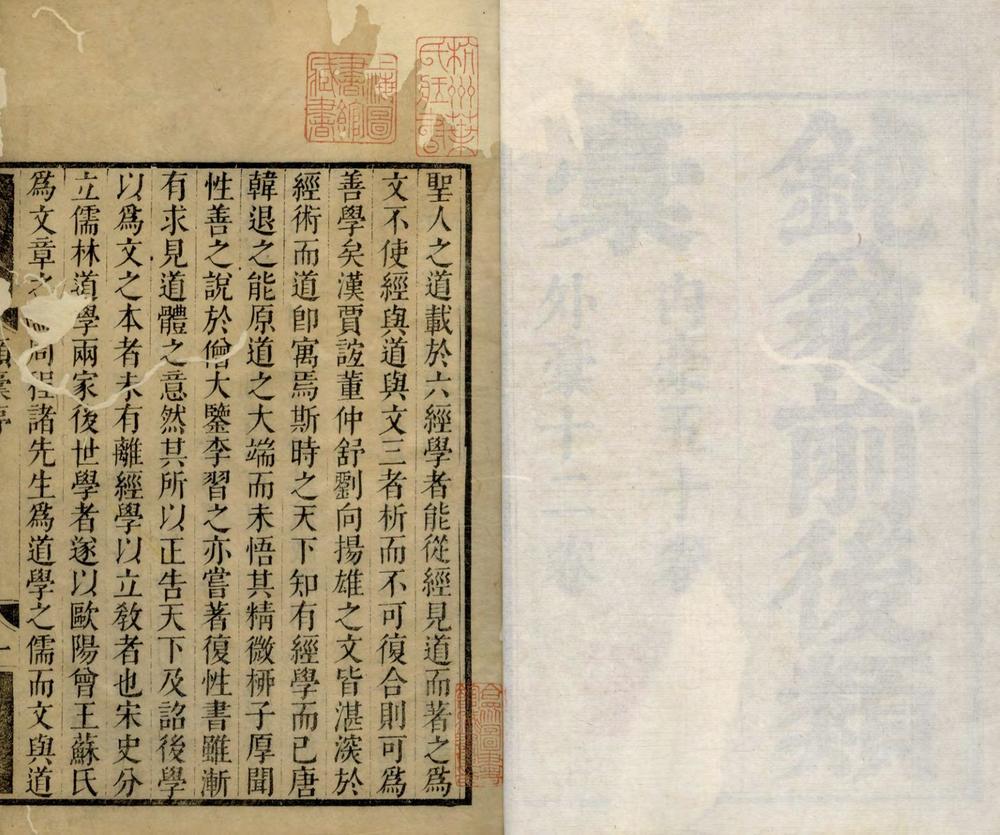 鈍翁前後類
稾
內稾五十卷
外稾十二卷
上海圖書館藏書
聖人之道載於六經學者能從經見道而著之爲
文不使經與道與文三者析而不可復合則可爲
善學矣漢賈誼董仲舒劉向揚雄之文皆湛深於
經術而道卽寓焉斯時之天下知有經學而已唐
韓退之能原道之大端而未悟其精微栁子厚聞
性善之說於僧大鑒李習之亦嘗著復性書雖漸
有求見道體之意然其所以正告天下及詔後學
以爲文之本者未有離經學以立敎者也宋史分
立儒林道學兩家後世學者遂以歐陽曾王蘇氏
爲文章之周程諸先生爲道學之儒而文與道
類稾序
一